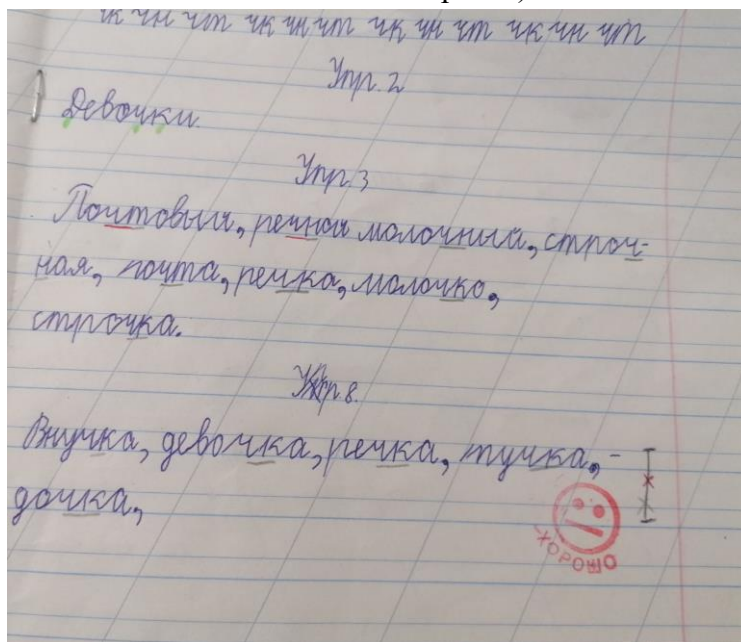 чк чн чт чк чн чт чк чн чт чк чн чт
Упр. 2
Девочки.
Упр. 3
Почтовый, речной молочный, строч-
ная, почта, речка, молочко,
строчка.
Упр. 8.
Внучка, девочка, речка, тучка, -
дочка,
ХОРОШО